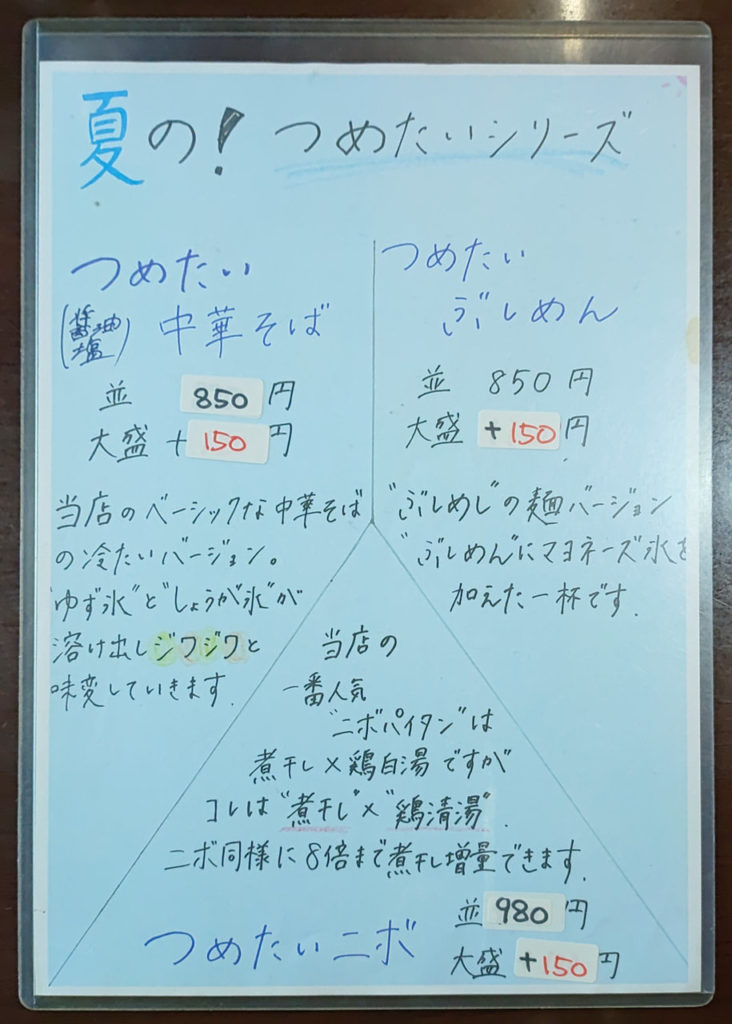 夏の! つめたいシリーズ
つめたい
(醤油
塩)
中華そば
並 850円
大盛 +150円
当店のベーシックな中華そば
の冷たいバージョン。
"ゆず氷"と"しょうが氷"が
溶け出しジワジワと
味変していきます.
つめたい
ぶしめん
並 850円
大盛 +150円
"ぶしめし"の麺バージョン
"ぶしめん"にマヨネーズ氷を
加えた一杯です.
当店の
一番人気
"ニボパイタン"は
煮干し×鶏白湯ですが
コレは"煮干し"×"鶏清湯".
ニボ同様に8倍まで煮干し増量できます.
つめたいニボ
並 980円
大盛 +150円